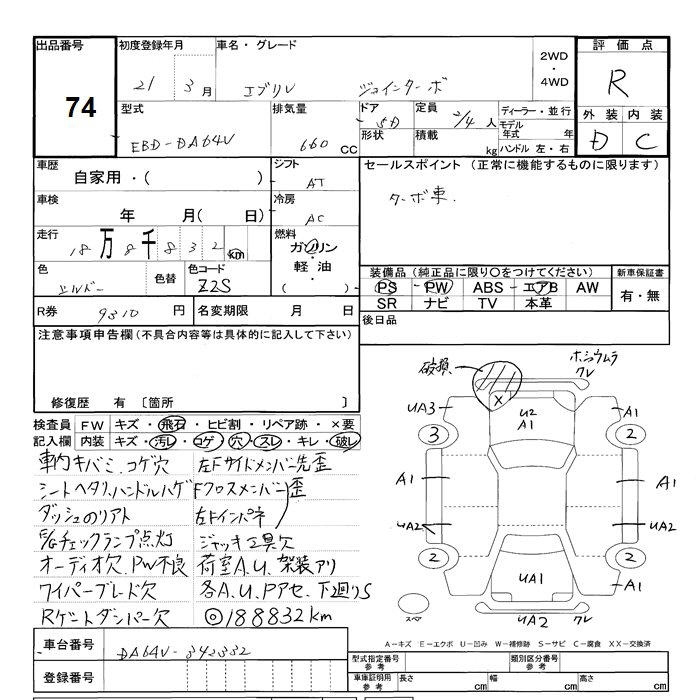 出品番号 初度登録年月 車名・グレード 2WD・4WD 評価点
74 21 3月 エブリV ジョインターボ R
型式 排気量 ドア 定員 ディーラー・並行 外装 内装
EBD-DA64V 660 CC 5D 2/4人 モデル年式 年 D C
形状 積載 kg ハンドル 左・右
車歴 シフト セールスポイント (正常に機能するものに限ります)
自家用・( ) AT ターボ車.
車検 冷房
年 月( 日) AC
走行 燃料
18万8千832km ガソリン・軽油・( )
色 色替 色コード 装備品 (純正品に限り〇をつけてください) 新車保証書
シルバー Z2S PS PW ABS エアB AW 有・無
SR ナビ TV 本革
R券 9310円 名変期限 月 日 後日品
注意事項申告欄 (不具合内容等は具体的に記入して下さい)
修復歴 有 〔箇所 〕
検査員記入欄 FW キズ・飛石・ヒビ割・リペア跡・×要
内装 キズ・汚レ・コゲ・穴・スレ・キレ・破レ
車内キバミ、コゲ穴 左Fサイドメンバー先歪
シートヘタリ、ハンドルハゲ Fクロスメンバー歪
ダッシュのリアト 左Fインパネ
E/gチェックランプ点灯 ジャッキ工具欠
オーディオ欠、PW不良 荷室A.U、架装アリ
ワイパーブレード欠 各A.U、Pアセ、下廻りS
Rゲートダンパー欠 ◎188832km
破損 ホショウムラ
ワレ
X U2
A1
UA3 A1
3 2
A1 A1
UA2 UA2
2 2
UA1 A1
スペア UA2 ワレ
A-キズ E-エクボ U-凹み W-補修跡 S-サビ C-腐食 XX-交換済
車台番号 DA64V-342332
型式指定番号 参考 類別区分番号 参考
登録番号
車庫証明用 参考 長さ cm 幅 cm 高さ cm